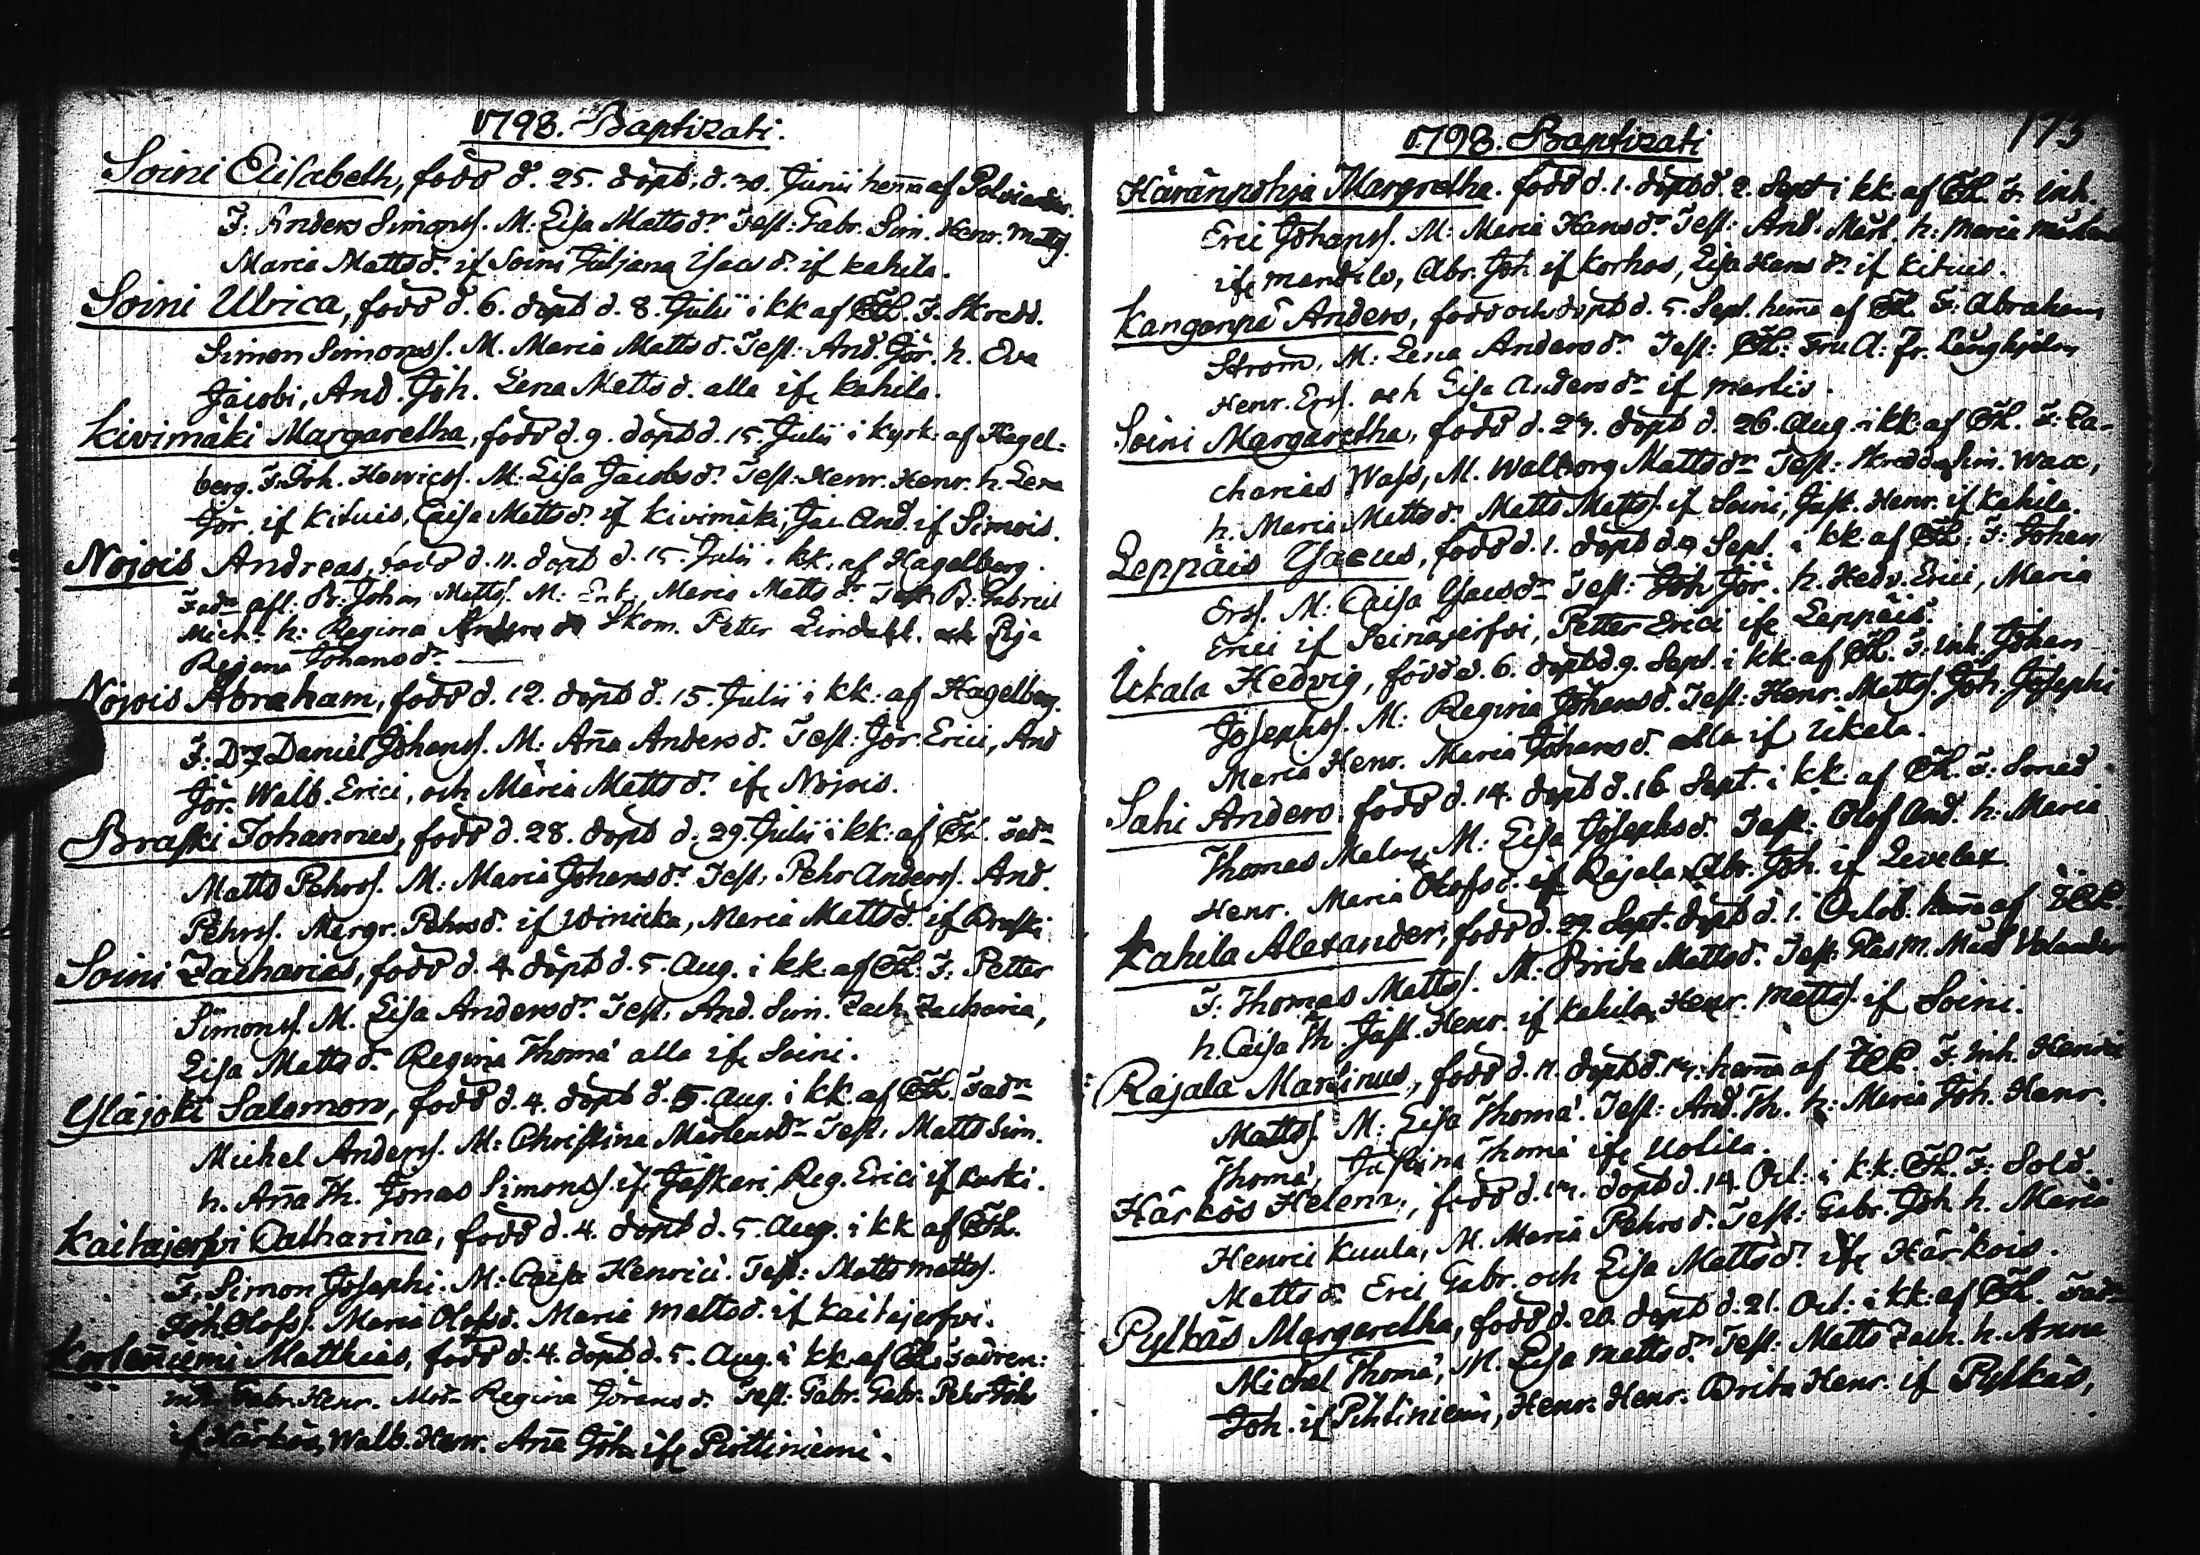 1798. Baptizati.
Soini Elisabeth, född d. 25. döpt d. 30. Junii hem̄a af
F: Anders Simonss. M: Lisa Mattsdr. Test: Gabr. Sim. Henr. Mattss.
Maria Mattsd. if Soini Juliana Isacsd. if Kahila.
Soini Ulrica, född d. 6. döpt d. 8. Julii i kk af Th. F. Skredd.
Simon Simonss. M. Maria Mattsd. Test: And. Jör. h. Eva
Jacobi, And. Joh. Lena Mattsd. alla ifr Kahila.
Kivimäki Margaretha, född d. 9. döpt d. 15. Julii i Kyrk: af Hagel-
berg. F: Joh. Henricss. M: Lisa Jacobsdr. Test: Henr. Henr. h. Lena
Jör. if Kituis, Caisa Mattsd. if Kivimäki, Jac. And. if Simois.
Nojois Andreas, född d. 11. döpt d. 15. Julii i kk. af Hagelberg.
Fadr afl: Br: Johan Mattss. M: Enk. Maria Mattsdr. Test: B: Gabriel
Mich: h: Regina Skom. Petter
Regina Johansdr.
Nojois Abraham, född d. 12. döpt d. 15. Julii i kk: af Hagelberg.
F: Daniel Johanss. M: An̄a Andersd. Test: Jör. Erici, And
Jör. Walb. Erici, och Maria Mattsdr. ifr Nojois.
Braski Johannes, född d. 28. döpt d. 29. Julii i kk: af Th. Fadr
Matts Pehrss. M: Maria Johansdr. Test: Pehr Anderss. And.
Pehrss. Margr. Pehrsd. if Winicka, Maria Mattsd. if Braski
Soini Zacharias, född d. 4. döpt d. 5. Aug. i kk. af Th. F: Petter
Simonss. M. Lisa Andersdr. Test: And. Sim. Zach. Zacharia,
Lisa Mattsdr. Regina Thomæ alla ifr Soini.
Yläjoki Salomon, född d. 4. döpt d. 5. Aug. i kk. af Th. Fadr
Michel Anderss. M: Christina Mårtensdr. Test: Matts Sim.
h. An̄a Th. Jonas Simonss. if Jäskari, Reg. Erici if Kurki.
Kaitajerfvi Catharina, född d. 4. döpt d. 5. Aug. i kk af Th.
F: Simon Josephi. M: Caisa Henrici. Test: Matts Mattss.
Joh. Olofss. Maria Olofsd. Maria Mattsd. if Kaitajerfvi.
Korten̄iemi Matthias, född d. 4. döpt d. 5. Aug. i kk af Th. Fadren:
Gabr. Henr. Modr Regina Jöransd. Test: Gabr. Gabr. Pehr Joh
if Härkös, Walb. Henr. An̄a Joh. ifr
173
1798. Baptizati
Häränpohja Margretha. född d. 1. döpt d. 2. Sept i kk. af Th. F: Inh.
Eric Johanss. M: Maria Hansdr. Test: And. Mårt. h: Maria
ifr Mandilo, Abr. Joh. if Korhos, Lisa Hansdr. if Kituis.
Kangonpä Anders, född och döpt d. 5. Sept. hem̄a af Th. F: Abraham
Ström, M: Lena Andersdr. Test: Th: Fru A: Fr.
Henr. Erss. och Lisa Andersdr. if Martis.
Soini Margaretha, född d. 23. döpt d. 26. Aug. i kk. af Th. F: Za-
charias Wass, M. Walborg Mattsdr. Test: Skredd. Sim. Wax,
h. Maria Mattsdr. Matts Mattss. if Soini, Just. Henr. if Kahila.
Leppäis Isacus, född d. 1. döpt d. Sept. i kk. af Th. F: Johan
Erss. M: Caisa Isacsdr. Test: Joh Jör. h. Hedv. Erici, Maria
Erici if Seinäjerfvi, Petter Erici ifr Leppäis.
Ukala Hedvig, född d. 6. döpt d. 9. Sept. i kk. af Th. F. Inh. Johan
Josephss. M: Regina Johansd. Test: Henr. Mattss. Joh. Josephi
Maria Henr. Maria Johansd. alla if Ukala.
Sahi Anders. född d. 14. döpt d. 16. Sept. i kk. af Th. F: Smed
Thomas M: Lisa Josephsd. Test: Olof And. h. Maria
Henr. Maria Olofsd. if Rajala, Abr. Joh. if
Kahila Alexander, född d. 29. Sept. döpt d. 1. Octob. hem̄a af
F: Thomas Mattss. M: Brita Mattsd. Test: Glasm. Mårt
h. Caisa Th. Just. Henr. if Kahila, Henr. Mattss. if Soini.
Rajala Martinus, född d. 11. döpt d. 13. hem̄a af F. Inh. Henric
Mattss. M: Lisa Thomæ. Test: And. Th. h: Maria Joh. Henr.
Thomæ, Justina Thomæ ifr Uolila.
Härkös Helena, född d. 13. döpt d. 14. Oct: i kk. Th. F: Sold.
Henric Kuula, M. Maria Pehrsd. Test: Gabr. Joh h. Maria
Mattsd. Eric Gabr. och Lisa Mattsdr. ifr Härkois.
Pylkäs Margaretha, född d. 20. döpt d. 21. Oct: i kk: af Th. Fadr
Michel Thomæ, M. Lisa Mattsdr. Test: Matts Zach. h. Anna
Joh. if Pihliniemi, Henr. Henr. Brita Henr. if Pylkäs,